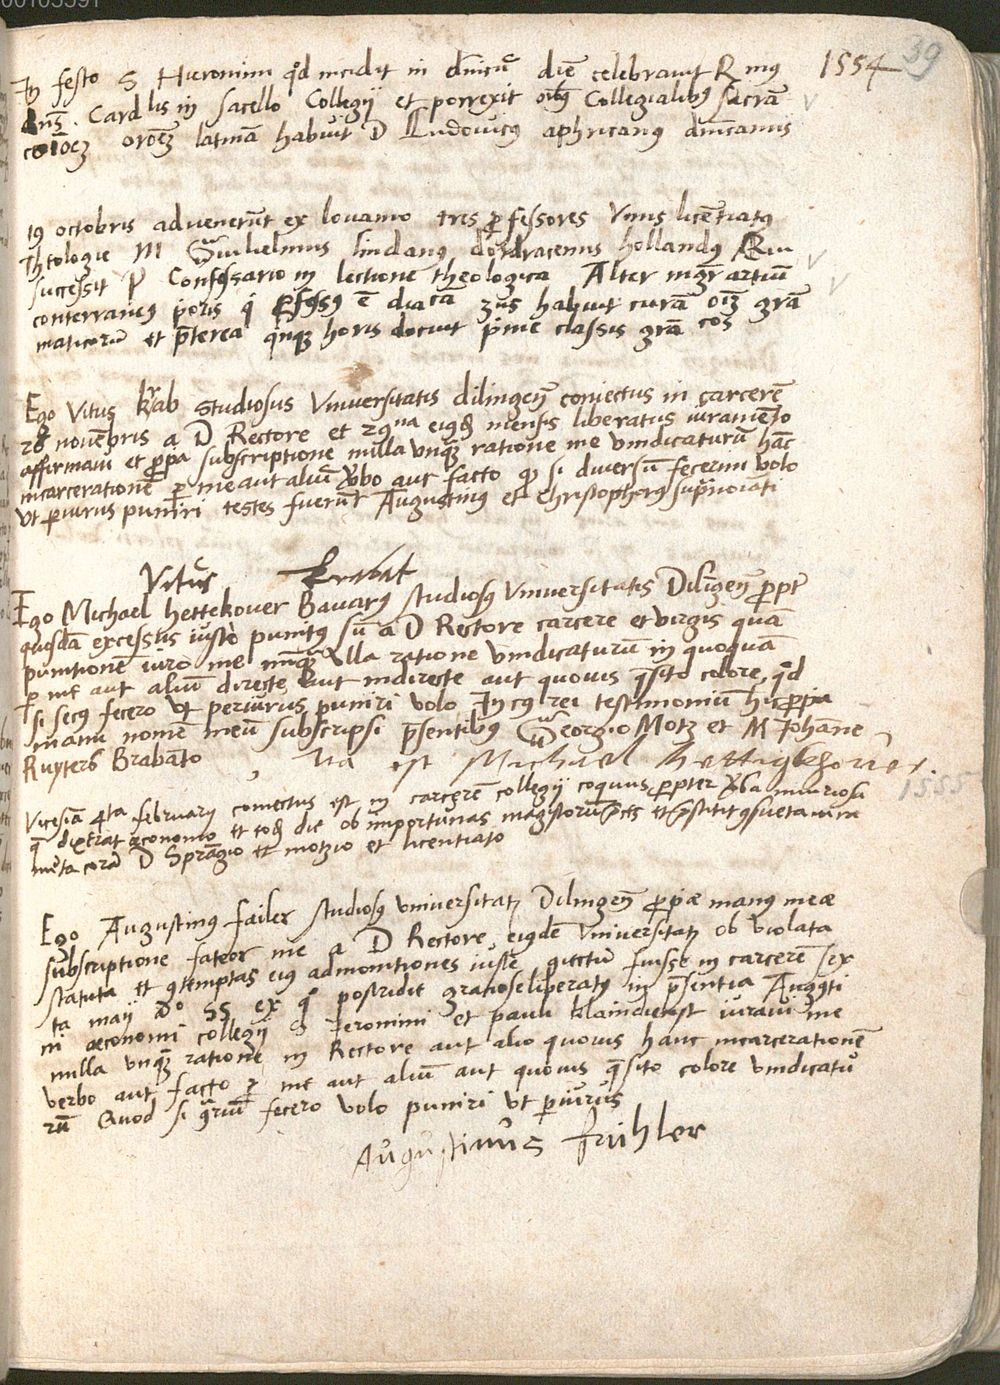 00103391
39
1554
In festo S Hieronimi qd incidit in dnicū diē celebravit R mus
dns. Cardlis in sacello Collegij et porrexit oibꝯ Collegialibꝯ sacrā
coīoeꝫ oroēꝫ latinā habuit D Ludovicꝯ aphricanꝯ dnicanus
19 octobris advenerūt ex lovanio tres pfessores Unus licētiatꝯ
theologie M Guilielmus lindanꝯ dordracenus hollandꝯ Qui
successit P Confessario in lectione theologica Alter mgr artiū
conterraneꝯ poris q pfessꝯ ē dia cā 3us habuit curā oiꝫ grā
maticorū et pterea qinqꝫ horis docuit prime classis grā cos
Ego Vitus krab studiosus Universitatis dilingeñ coniectus in carcerē
28 novēbris a D Rectore et 29na eiꝯdē mensis liberatus iuramēto
affirmavi et ppa subscriptione nulla unqꝫ ratione me vindicaturū hāc
incarcerationē p me aut aliū vbo aut facto qd si diversū fecerim volo
ut periurus puniri testes fuerūt Augustinꝯ et Christophorꝯ supnoiati
Vitus Krabat
Ego Michael hettekover Bavarꝯ studiosꝯ Universitatis Dilingeñ ppt
quosdā excessus iuste punitꝯ sū a D Rectore carcere et virgis quā
punitionē iuro me nūqꝫ ulla ratione vindicaturū in quoquā
p me aut aliū directe aut indirecte aut quovis qsito colore, qd
si secꝯ fecero ut periurus puniri volo In cꝯ rei testimoniū hic ppia
manu nomē meū subscripsi psentibus Georgio Motz et M Johāne
Ruyters Brabāto Ita est Michael hettigkhover.
1555
Vicesia qta februarij coniectus est in carcerē collegij coquus ppter vba iniuriosa
q dixerat œconomo et eodē die ob importunas magistorū pces et pstitit gsueta iura
mēta corā D Sprāgio et motzio et licentiato
Ego Augustinꝯ failer studiosꝯ universitatꝫ Dilingeñ ppiæ manꝯ meæ
subscriptione fateor me a D Rectore eiꝯdē Universitatꝫ ob violata
statuta et gtemptas eiꝯ admonitiones iuste giectū fuisse in carcerē sex
ta maij ao 55 ex q postridie gratiose liberatꝯ in psentia Augꝯti
ni œconomi collegij S Ieronimi et pauli klaindienst iuravi me
nulla unqꝫ ratione in Rectore aut alio quovis hanc incarcerationē
verbo aut facto p me aut aliū aut quovis qsito colore vindicatu
rū Quod si griū fecero volo puniri ut piurus
Augustinus faihler